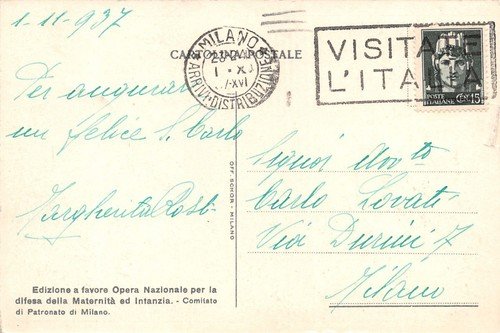 1-11-937
CARTOLINA POSTALE
MILANO
ARRIVI E DISTRIBUZIONE
VISITATE
L'ITALIA
POSTE ITALIANE
Cent. 15
Per augurarti
un felice S. Carlo
Margherita Rossi
OFF. SCHOR - MILANO
Signor
Carlo Lovati
Via Durini 7
Milano
Edizione a favore Opera Nazionale per la
difesa della Maternità ed Infanzia. - Comitato
di Patronato di Milano.